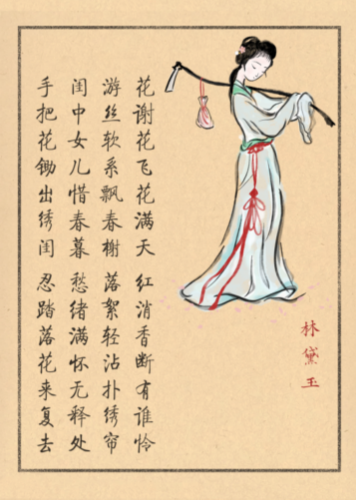 花谢花飞花满天 红消香断有谁怜
游丝软系飘春榭 落絮轻沾扑绣帘
闺中女儿惜春暮 愁绪满怀无释处
手把花锄出绣闺 忍踏落花来复去
林黛玉